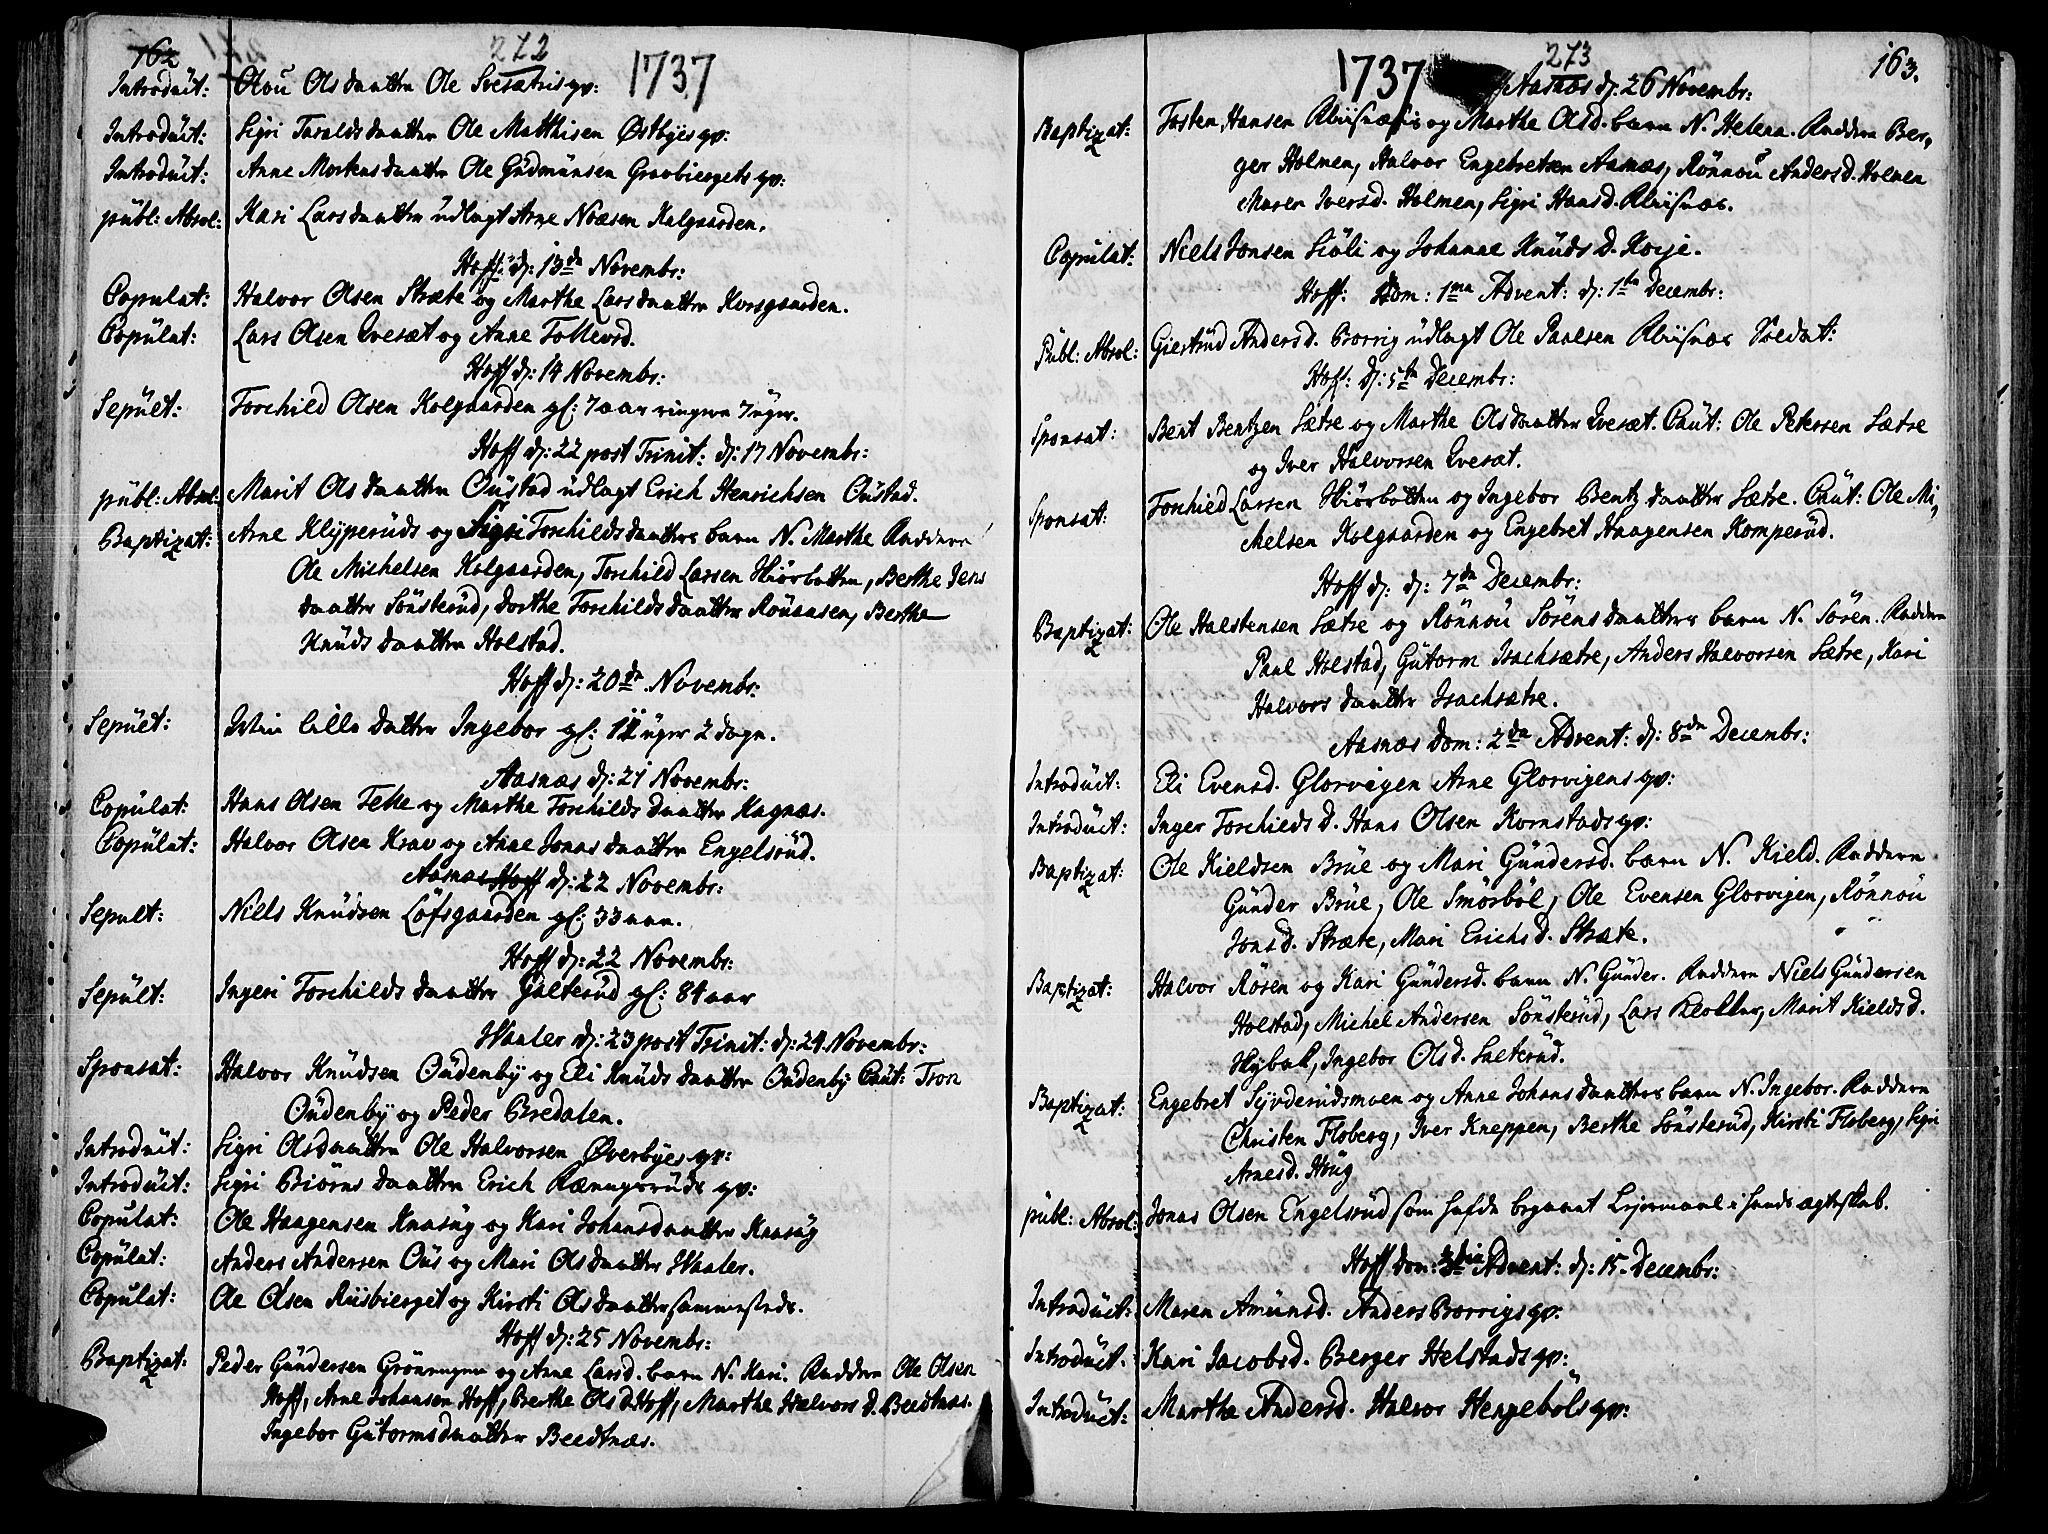 162 272 1737
Introduct: Olou Olsdaatter Ole Svesætris qv:
Introduct: Sigri Taraldsdaatter Ole Matthisen Østbyes qv:
Introduct: Anne Mortensdaatter Ole Gudmunsen Gravbiergets qv:
publ: Absol: Kari Larsdaatter udlagt Arne Noæsen Kalgaarden.
Hoff d: 13de Novembr:
Copulat: Halvor Olsen Stræte og Marthe Larsdaatter Korsgaarden.
Copulat: Lars Olsen Qvesæt og Anne Tollevsd.
Hoff d: 14 Novembr:
Sepult: Torchild Olsen Kolgaarden gl: 7 aar ringere 7 uger.
Hoff d: 22 post Trinit: d: 17 Novembr:
publ: Absol: Marit Olsdaatter Oustad udlagt Erich Henrichsen Oustad.
Baptizat: Arne Klyperuds og Sigri Torchildsdaatters barn N. Marthe Faddere
Ole Michelsen Kolgaarden, Torchild Larsen Hiörbotten, Berthe Jens
daatter Sönsterud, dorthe Torchildsdaatter Rouaasen, Berthe
Knudsdaatter Holstad.
Hoff d: 20de Novembr:
Sepult: Min lille datter Ingebor gl: 11 uger 2 dage.
Aasnæs d: 21 Novembr:
Copulat: Hans Olsen Telle og Marthe Torchildsdaatter Kagnæs.
Copulat: Halvor Olsen Krav og Anne Jonasdaatter Engelsrud.
Aasnæs Hoff d: 22 Novembr:
Sepult: Niels Knudsen Löfsgaarden gl: 33 aar.
Hoff d: 22 Novembr:
Sepult: Ingeri Torchildsdaatter Galterud gl: 84 aar
Waaler d: 23 post Trinit: d: 24 Novembr:
Sponsat: Halvor Knudsen Oudenby og Eli Knudsdaatter Oudenby Caut: Tron
Oudenby og Peder Bredalen.
Introduct: Sigri Olsdaatter Ole Halvorsen Øverbyes qv:
Introduct: Sigri Biörnsdaatter Erich Rængeruds qv:
Copulat: Ole Haagensen Knasug og Kari Johansdaatter Knasug
Copulat: Anders Andersen Ous og Mari Olsdaatter Waaler.
Copulat: Ole Olsen Riisbierget og Kirsti Olsdaatter sammesteds.
Hoff d: 25 Novembr:
Baptizat: Peder Gundersen Grönengen og Anne Larsd. barn N. Kari. Faddere Ole Olsen
Hoff, Arne Johansen Hoff, Berthe Olsd Hoff, Marthe Halvorsd. Beedtnæs.
Ingebor Gutormsdaatter Beedtnæs.
1737 273 163.
Aasnæs d: 26 Novembr:
Baptizat: Tosten Hansen Riisnæs og Marthe Olsd. barn N. Helena. Faddere Ber,
ger Holmen, Halvor Engebretsen Aasnæs, Rönnou Andersd. Holmen
Maren Iversd. Holmen, Sigri Hansd. Riisnæs.
Copulat: Niels Jonsen Siöli og Johanne Knudsd. Koije.
Hoff: Dom: 1ma Advent: d: 1ste Decembr:
Publ: Absol: Giertrud Andersd. Borrig udlagt Ole Paalsen Riisnæs Soldat:
Hoff: d: 5te Decembr:
Sponsat: Bent Bentzen Sætre og Marthe Olsdaatter Qvesæt. Caut: Ole Petersen Sætre
og Iver Halvorsen Qvesæt.
Sponsat: Torchied Larsen Hiörbotten og Ingebor Bentzdaatter Sætre. Caut: Ole Mi,
chelsen Kolgaarden og Engebret Haagensen Komperud.
Hoff d: d: 7de Decembr:
Baptizat: Ole Halstensen Sætre og Rönnou Sörensdaatters barn N. Sören. Faddere
Paul Holstad, Gutorm Isachsætre, Anders Halvorsen Sætre, Kari
Halvorsdaatter Isachsætre.
Aasnæs Dom: 2da Advent: d: 8de Decembr:
Introduct: Eli Evensd. Glorvigen Arne Glorvigens qv:
Introduct: Inger Torchieds d. Hans Olsen Kornstads qv:
Baptizat: Ole Kieldsen Brue og Mari Gundersd. barn N. Kield. Faddere
Gunder Brue, Ole Smörböl, Ole Evensen Glorvigen, Rönnou
Jonsd. Stræte, Mari Erichsd. Stræte.
Baptizat: Halvor Rosen og Kari Gundersd. barn N. Gunder. Faddere Niels Gundersen
Holstad, Michel Andersen Sönsterud, Lars Klokker, Marit Kieldsd.
Hybak, Ingebor Olsd. Sæterud.
Baptizat: Engebret Syvderudsmoen og Anne Johansdaatters barn N. Ingebor. Faddere
Christen Floberg, Iver Kneppen, Berthe Sönsterud, Kirsti Floberg, Sigri
Arnesd. Houg
publ: Absol: Jonas Olsen Engelsrud som hafde begaaet Leiermaal i hands ægteskab.
Hoff Dom: 3tia Advent: d: 15 Decembr:
Introduct: Maren Amunsd. Anders Borrigs qv:
Introduct. Kari Jacobsd. Berger Helstads qv:
Introduct: Marthe Andersd. Halvor Hengeböls qv: